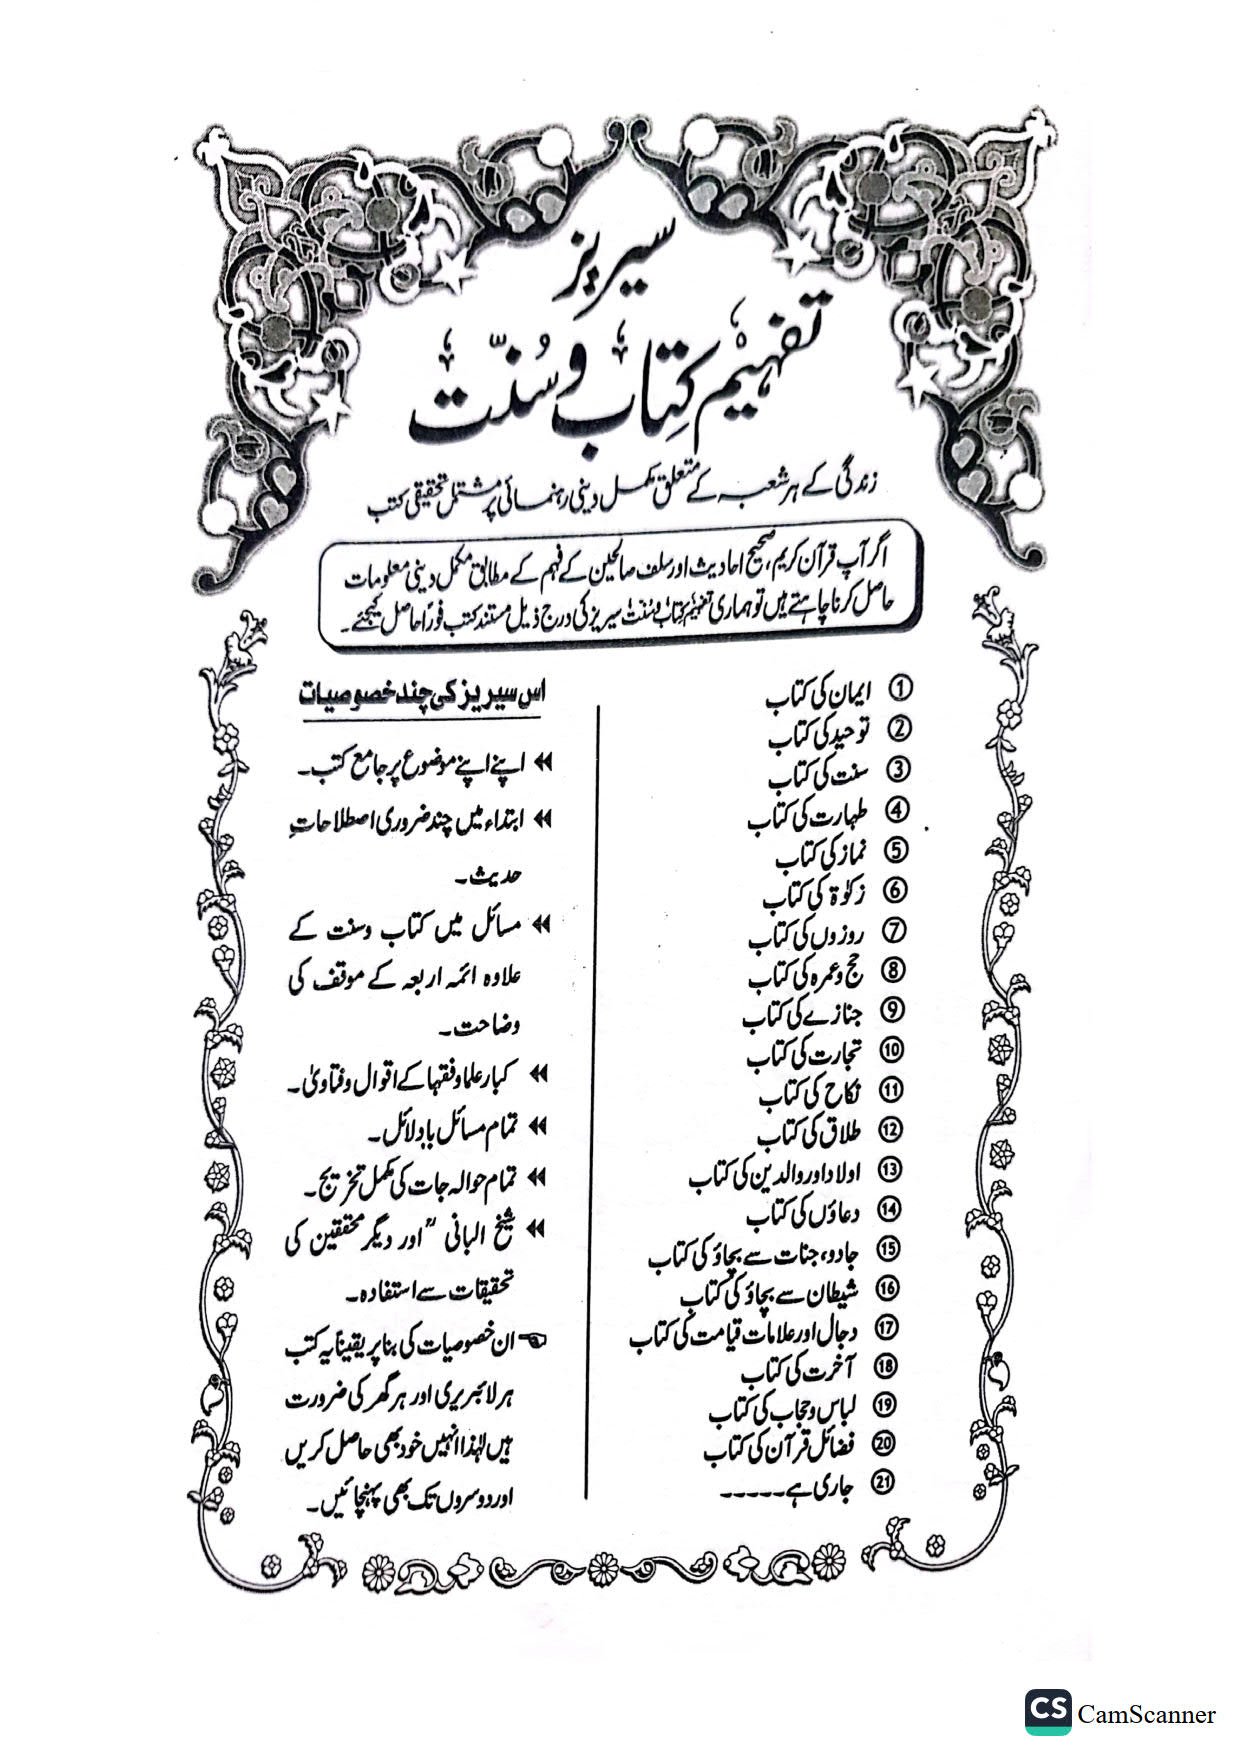 سیریز
تفہیم کتاب و سُنّت
زندگی کے ہر شعبہ کے متعلق مکمل دینی رہنمائی پر مشتمل تحقیقی کتب
اگر آپ قرآن کریم، صحیح احادیث اور سلف صالحین کے فہم کے مطابق مکمل دینی معلومات
حاصل کرنا چاہتے ہیں تو ہماری تفہیم کتاب و سُنّت سیریز کی درج ذیل مستند کتب فوراً حاصل کیجئے۔
① ایمان کی کتاب
② توحید کی کتاب
③ سنت کی کتاب
④ طہارت کی کتاب
⑤ نماز کی کتاب
⑥ زکوٰۃ کی کتاب
⑦ روزوں کی کتاب
⑧ حج و عمرہ کی کتاب
⑨ جنازے کی کتاب
⑩ تجارت کی کتاب
⑪ نکاح کی کتاب
⑫ طلاق کی کتاب
⑬ اولاد اور والدین کی کتاب
⑭ دعاؤں کی کتاب
⑮ جادو، جنات سے بچاؤ کی کتاب
⑯ شیطان سے بچاؤ کی کتاب
⑰ دجال اور علامات قیامت کی کتاب
⑱ آخرت کی کتاب
⑲ لباس و حجاب کی کتاب
⑳ فضائل قرآن کی کتاب
㉑ جاری ہے-----
اس سیریز کی چند خصوصیات
اپنے اپنے موضوع پر جامع کتب۔
ابتداء میں چند ضروری اصطلاحاتِ
حدیث۔
مسائل میں کتاب و سنت کے
علاوہ ائمہ اربعہ کے موقف کی
وضاحت۔
کبار علما و فقہا کے اقوال و فتاویٰ۔
تمام مسائل بادلائل۔
تمام حوالہ جات کی مکمل تخریج۔
شیخ البانی ؒ اور دیگر محققین کی
تحقیقات سے استفادہ۔
ان خصوصیات کی بنا پر یقیناً یہ کتب
ہر لائبریری اور ہر گھر کی ضرورت
ہیں لہٰذا انہیں خود بھی حاصل کریں
اور دوسروں تک بھی پہنچائیں۔
CS CamScanner